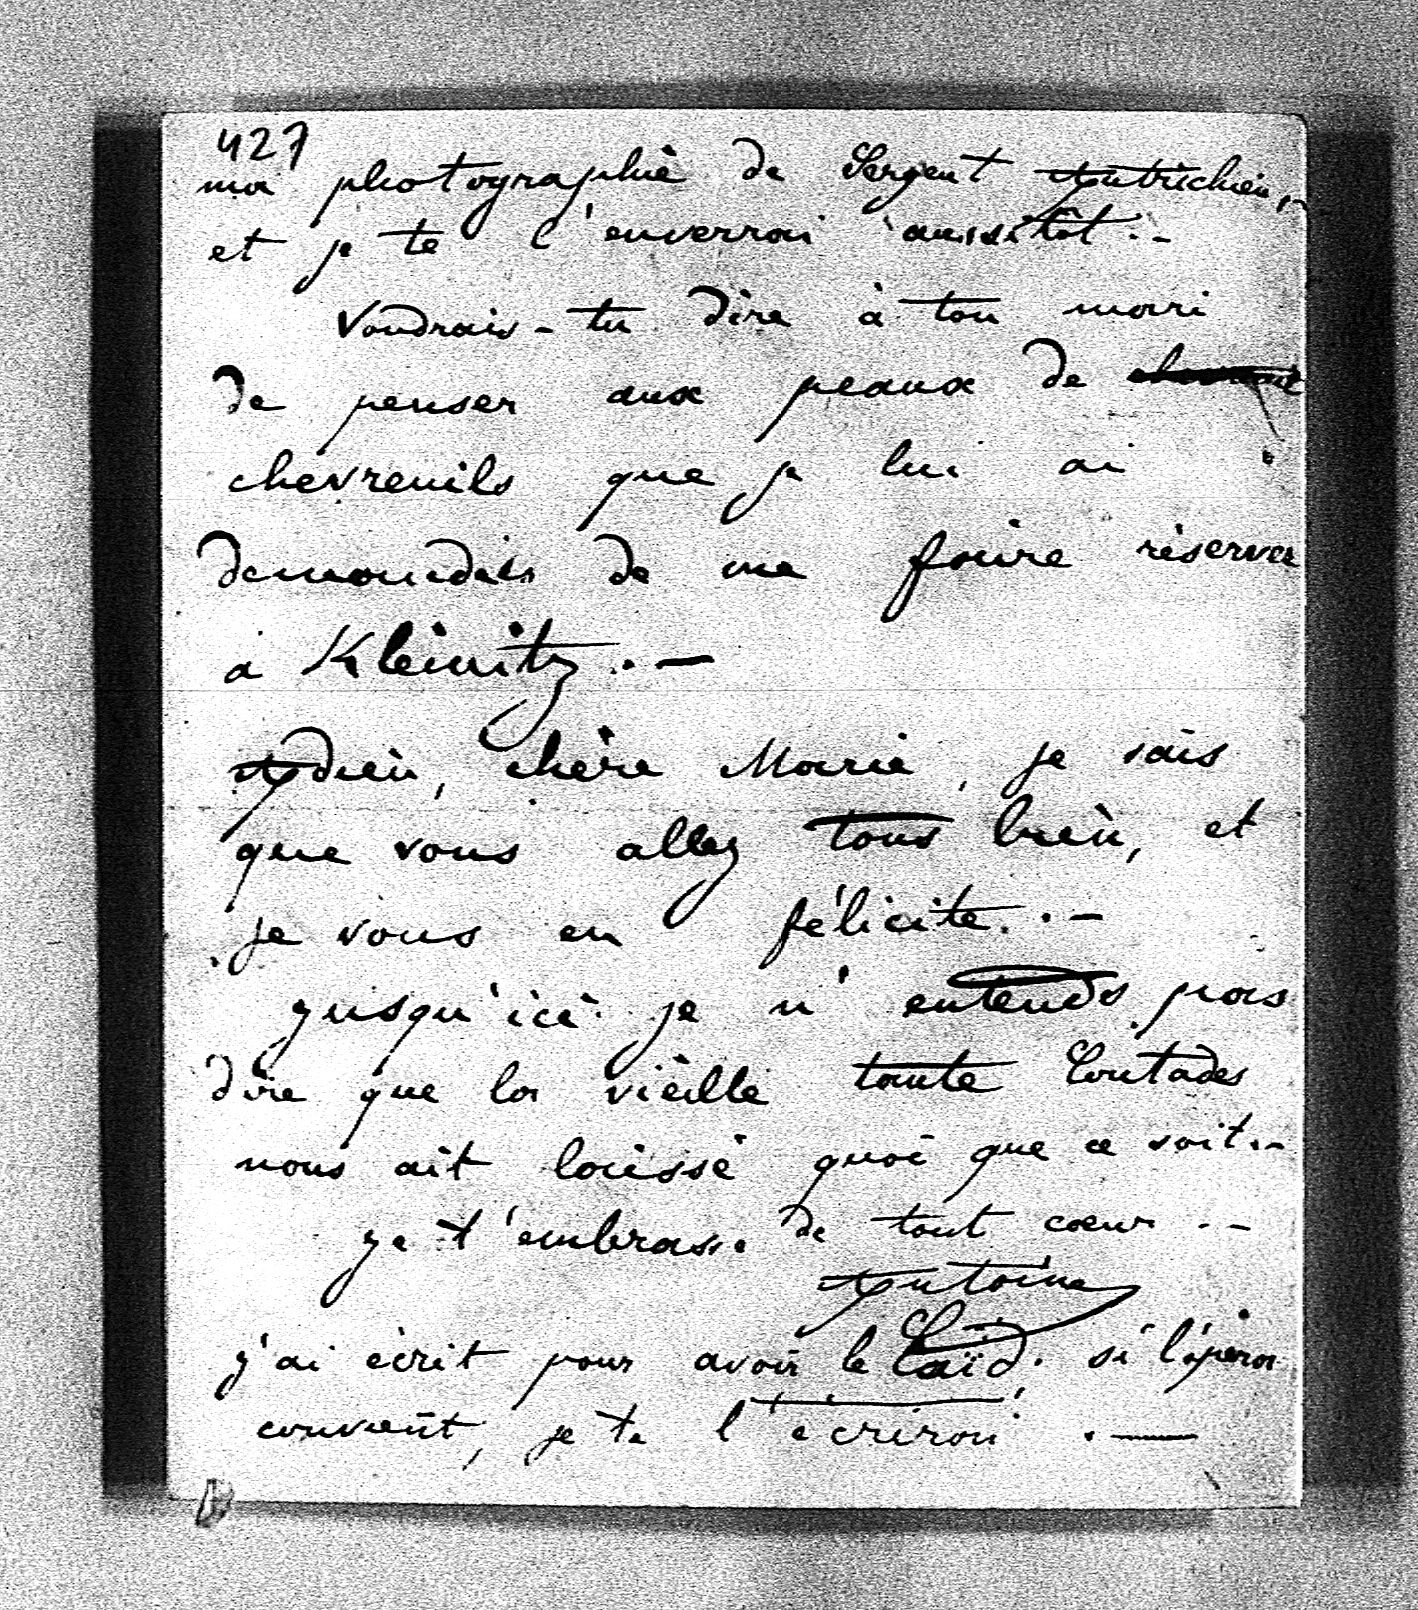 427
ma photographie de Sergent Autrichien,
et je te l'enverrai aussitôt.-
Voudrais-tu dire à ton mari
de penser aux peaux de
chevreuils que je lui ai
demandées de me faire réserver
a Kleinitz.-
Adieu, chère Marie, je sais
que vous allez tous bien, et
je vous en félicite.-
jusqu'ici je n'entends pas
dire que la vieille tante Contades
nous ait laissé quoi que ce soit.-
je t'embrasse de tout coeur.-
Antoine
j'ai écrit pour avoir le Caïd. si
convient, je te l'écrirai.-